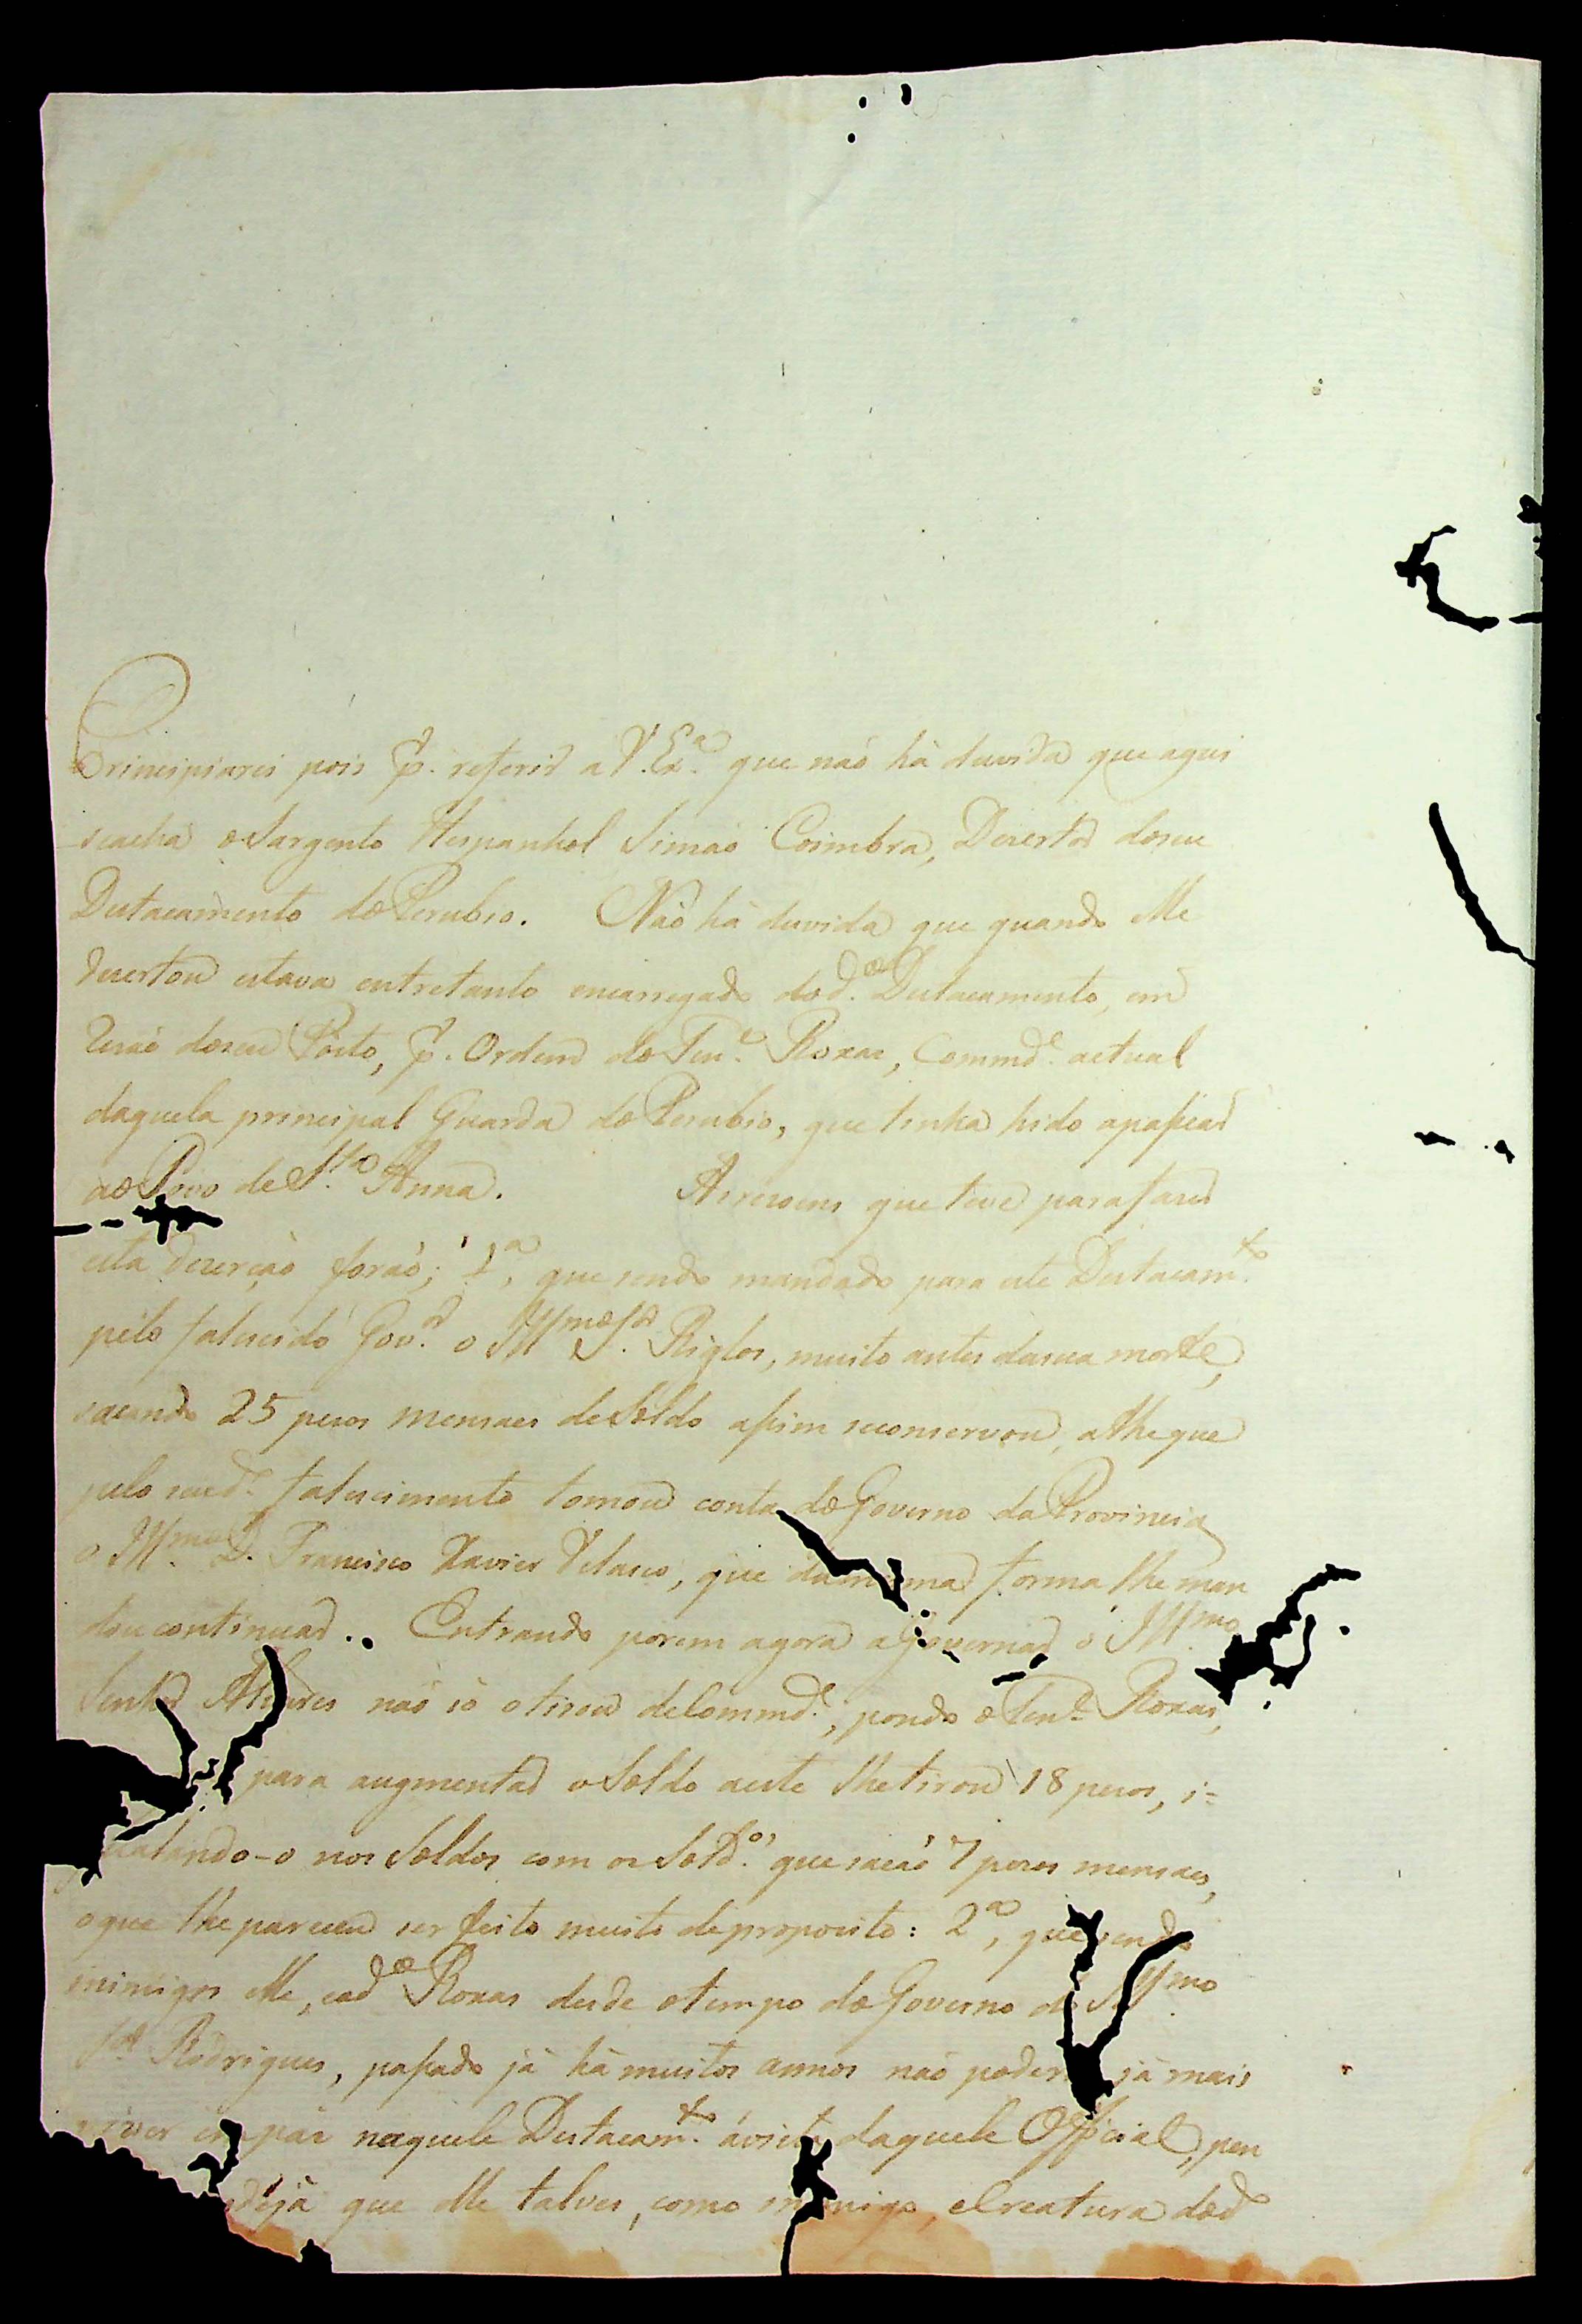 Principiarei pois p. referir a V. Ex.ª que naó há duvida que aqui
seacha o Sargento Hespanhol Simaó Coimbra, Dezertor doseu
Destacamento do Perubio. Naó há duvida que quando elle
dezertou estava entretanto encarregado dod.º Destacamento, em
rezaó doseu Posto, p. Ordem do Ten.e Roxas, Commd.e actual
daquela principal Guarda do Perubio, que tinha hido apassear
ao Povo de S.ta Anna. As rezoens que teve parafazer
esta dezerçaó foraó; 1.ª, que sendo mandado para este Destacam.to
pelo falescido Gov.or o Ill.mo S.or Riglos, muito antes dasua morte,
sacando 25 pezos mensaes de Soldo assim seconservou, atheque
pelo sued.e falescimento tomou conta do Governo da Provincia
o Ill.mo D. Francisco Xavier Velasco, que damesma forma lhe man
dou continuar.. Entrando porem agora aGovernar o Ill.mo
Senhor Alvares naó só otirou deCommd.e, pondo o Ten.e Roxas,
para augmentar o Soldo aeste lhetirou 18 pezos, i=
gualando-o nos Soldos com os Sold.os que sacaó 7 pezos mensaes,
oque lhepareceu ser feito muito deproposito: 2.ª, que sendo
inimigos elle, eod.º Roxas desde otempo do Governo do Ill.mo
S.or Rodrigues, passado já há muitos annos naó poderia já mais
viver empáz naquele Destacam.to ávista daquele Official, pen
dejá que elle talves, como inimigo, eCreatura dod.º